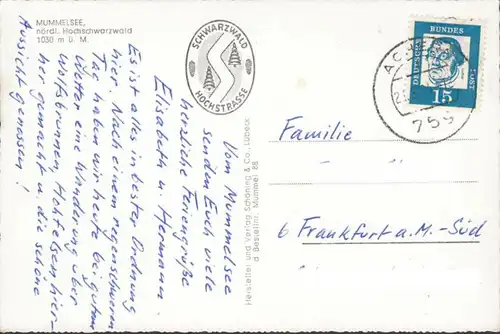 MUMMELSEE,
nördl. Hochschwarzwald
1030 m ü. M.
SCHWARZWALD
HOCHSTRASSE
Vom Mummelsee
senden Euch viele
herzliche Feriengrüße
Elisabeth u. Hermann.
Es ist alles in bester Ordnung
hier. Nach einem regenschweren
Tag haben wir heute bei gutem
Wetter eine Wanderung über
Wolfsbrunnen, Hohfelsen hier-
her gemacht u. die schöne
Aussicht genossen!
Hersteller und Verlag Schöning & Co., Lübeck
Bestellnr. Mummel 88
DEUTSCHE BUNDESPOST
15
759
Familie
6 Frankfurt a. M.-Süd